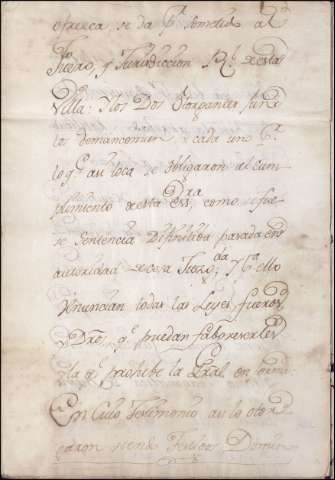 ofresca se da pr. sometido al
fuero, y Jurisdiccion Rl. desta
Villa: Y los Dos Otorgantes juntos
de mancomun y cada uno pr.
lo q.e au toca se obligaron al cum-
plimiento desta Essra, como si fue-
se Sentencia Difinitiba pasada en
autoridad de cosa Juzgda, y pa. ello
Renuncian todas las Leyes, fueros,
y Dros, q.e puedan faboreserles
y la q.e prohibe la Gral en forma:
En Cuio Testimonio asi lo otor-
garon siendo Testigos Domin